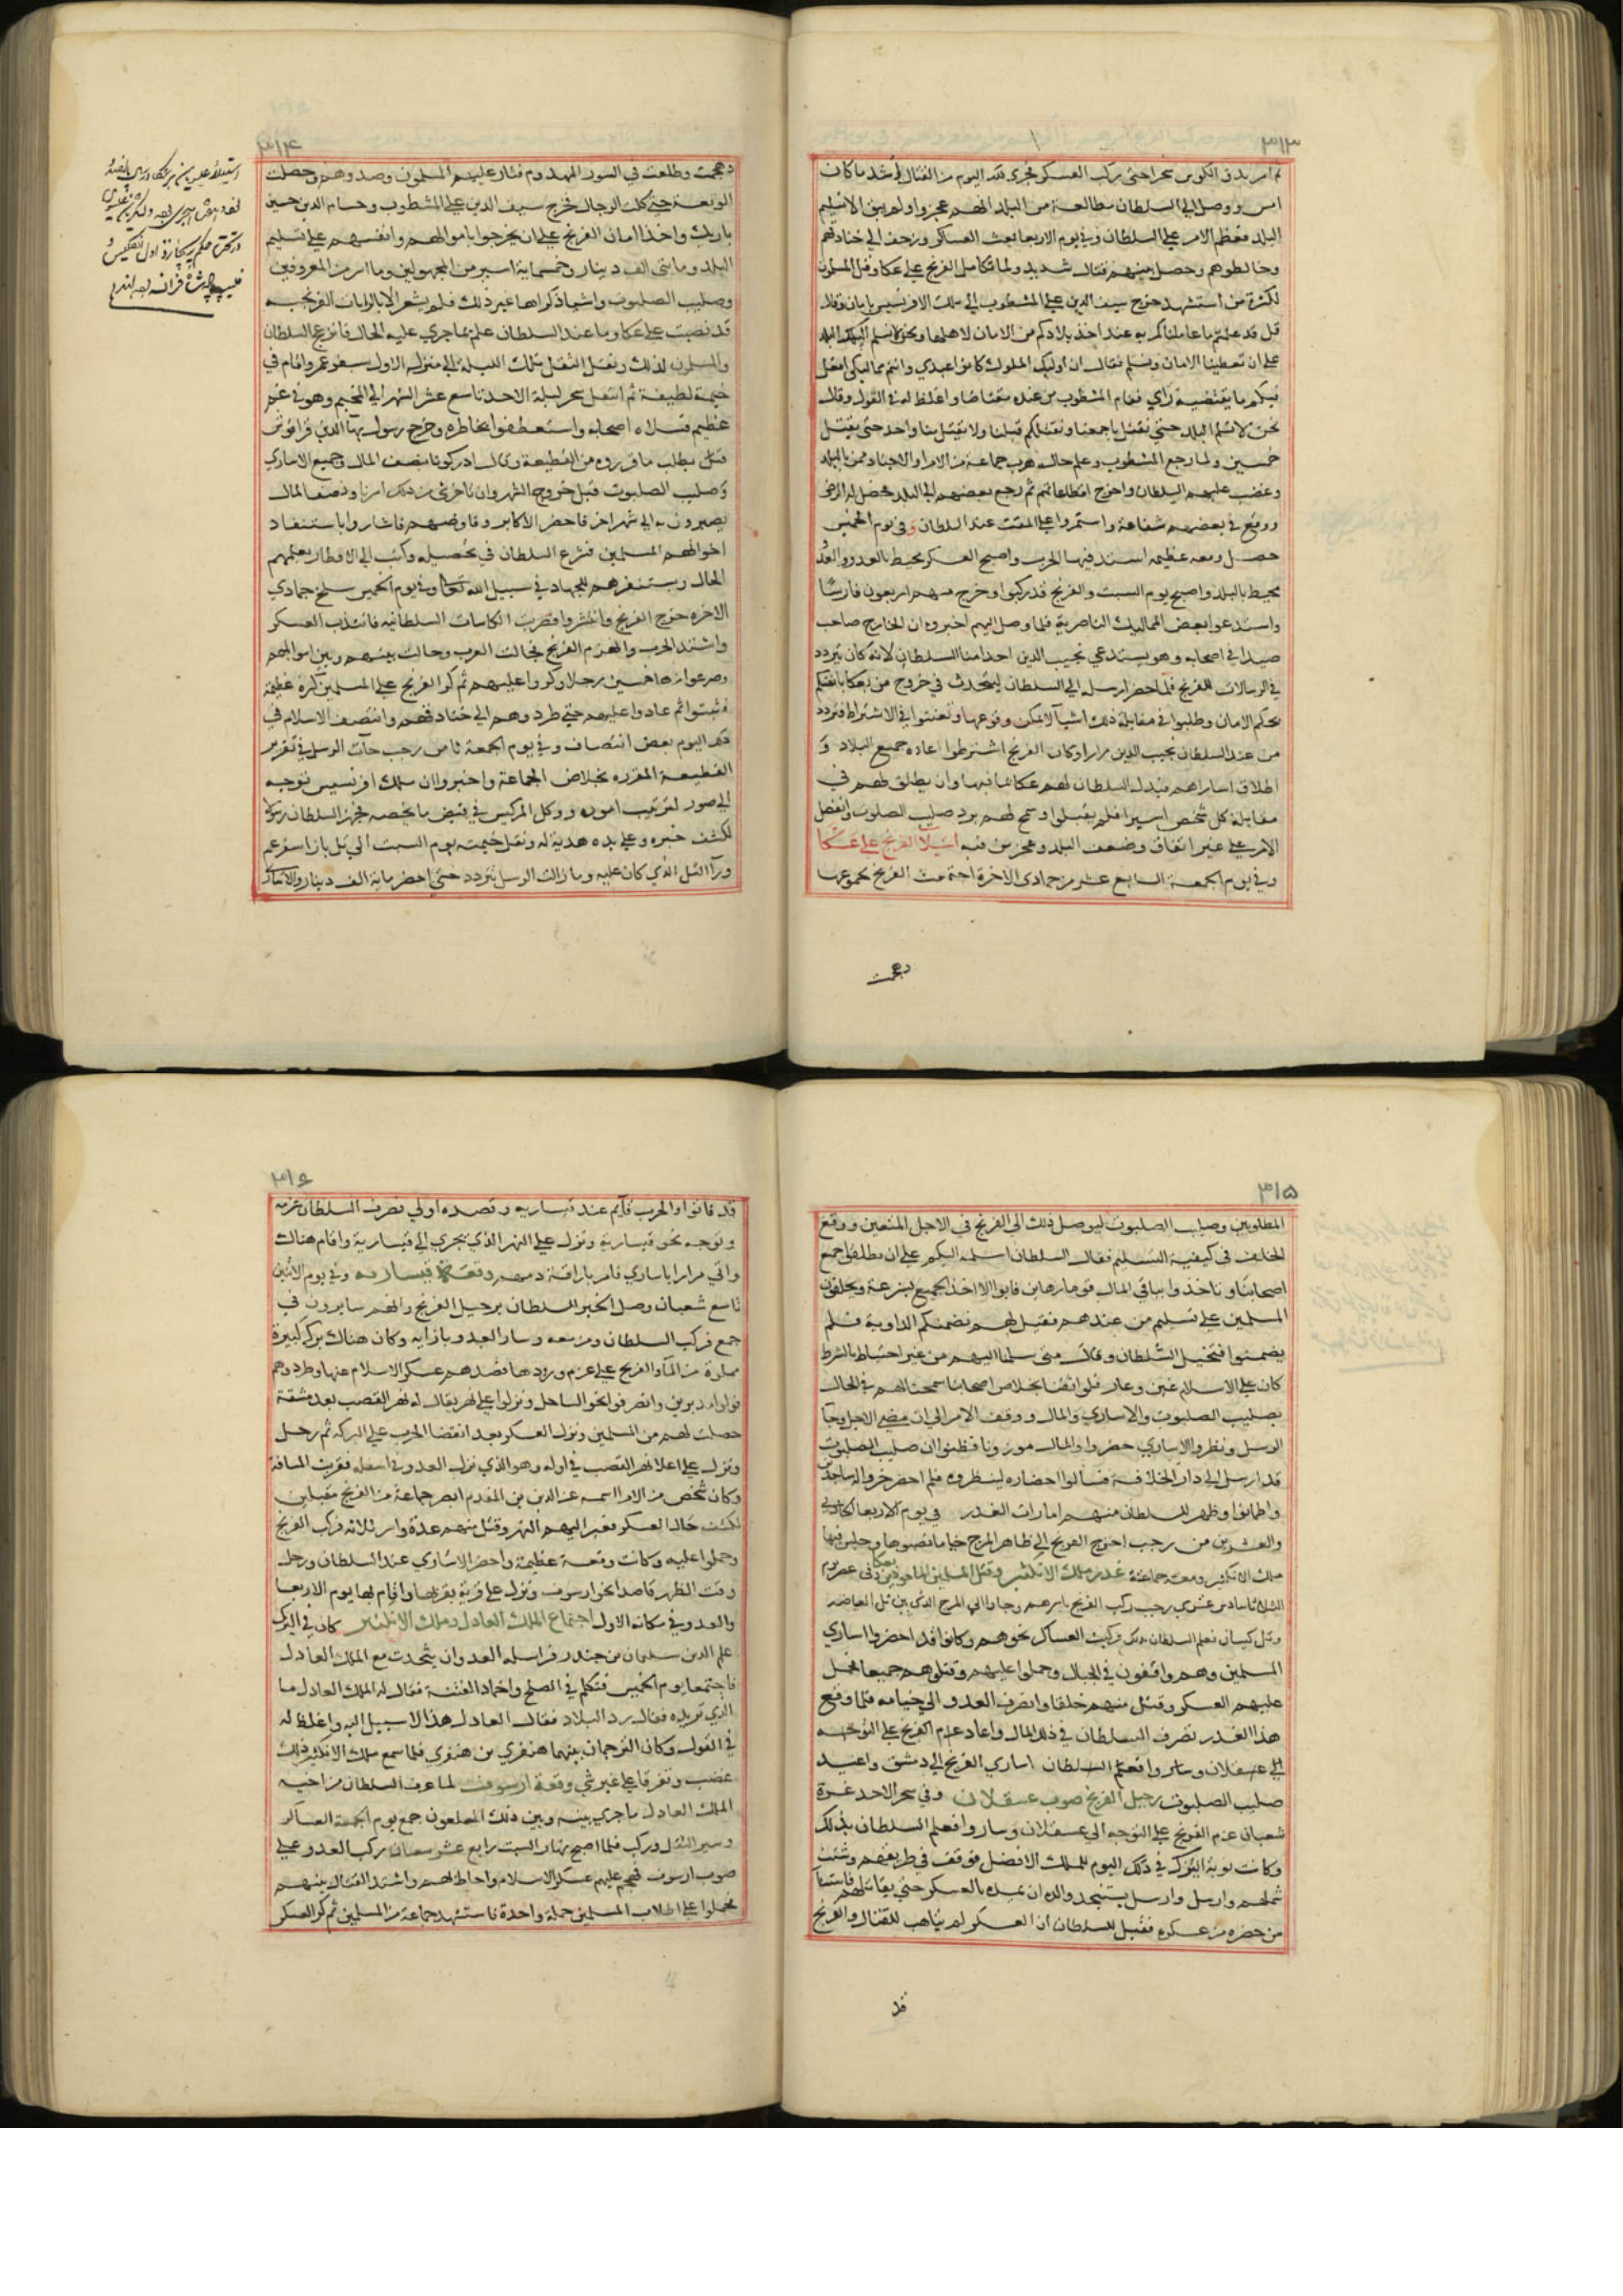 ٣١٣
امس ووصل الى السلطان مطالعة من البلد انهم عجزوا ولم يبق الا تسليم
البلد فعظم الامر على السلطان وفي يوم الاربعا بعث العسكر وزحف الى خنادقهم
وخالطوهم وحصل بينهم قتال شديد ولما تكامل الفرنج على عكا وقل المسلمون
لكثرة من استشهد خرج سيف الدين على المشطوب الى ملك الافرنسيس بامان وقال
قل قد علمتم ما عاملناكم به عند اخذ بلادكم من الامان لاهلها ونحن نسلم اليك البلد
على ان تعطينا الامان ونسلم فقال ان اوليك الملوك كانوا عبيدي وانتم مماليكي افعل
فيكم ما يقتضيه رأي فقام المشطوب من عنده مغتاضا واغلظ له في القول وقال
نحن لا نسلم البلد حتى نقتل باجمعنا ونقتلكم قبلنا ولا يقتل منا واحد حتى يقتل
خمسين ولما رجع المشطوب وعلم حاله هرب جماعة من الامرا والاجناد ممن بالبلد
وغضب عليهم السلطان واخرج اقطاعاتهم ثم رجع بعضهم الى البلد فحصل له الرضى
ووقع في بعضهم شفاعة واستمروا على المقت عند السلطان وفي يوم الخميس
حصل وقعه عظيمه اشتد فيها الحرب واصبح العسكر محيط بالعدو والعدو
محيط بالبلد واصبح يوم السبت والفرنج قد ركبوا وخرج منهم اربعون فارسًا
واستدعوا بعض المماليك الناصرية فلما وصل اليهم اخبروه ان الخارج صاحب
صيدا في اصحابه وهو يستدعي نجيب الدين احد امنا السلطان لانه كان يتردد
في الرسالات للفرنج فلما حضر ارسله الى السلطان ليتحدث في خروج من بعكا بانفسهم
بحكم الامان وطلبوا في مقابلة ذلك اشيآ لا يمكن وقوعها وتعنتوا في الاشتراط فتردد
من عند السلطان نجيب الدين مرارا وكان الفرنج اشترطوا اعاده جميع البلاد و
اطلاق اساراهم فبذل السلطان لهم عكا بما فيها وان يطلق لهم في
مقابلة كل شخص اسيرا فلم يقبلوا وسمح لهم برد صليب الصلبوت وانفصل
الامر على غير اتفاق وضعف البلد وعجز من فيه استيلآ الفرنج على عكا
وفي يوم الجمعة السابع عشر من جمادى الاخرة اجتمعت الفرنج بجموعها
دهمت
٣١٤
دهمت وطلعت في السور المهدوم فثار عليهم المسلمون وصدوهم وحصلت
الوقعة حتى كلت الرجال فخرج سيف الدين على المشطوب وحسام الدين حسين
باريك واخذا امان الفرنج على ان يخرجوا باموالهم وانفسهم على تسليم
البلد ومايتى الف دينار وخمسماية اسير من المجهولين وماية اسير من المعروفين
وصليب الصلبوت واشيا ذكراها غير ذلك فلم يشعر الا بالرايات الفرنجيه
قد نصبت على عكا وما عند السلطان علم بما جرى عليه الحال فانزعج السلطان
والمسلمون لذلك ونقل الثقل تلك الليلة الى منزله الاول بسفرعم واقام في
خيمة لطيفة ثم انتقل سحر ليلة الاحد تاسع عشر الشهر الى المخيم وهو في غم
عظيم فسلاه اصحابه واستعطفوا بخاطره وخرج رسول بهآ الدين قراقوش
يطلب ما قرروه من القطيعة وقال ادركونا بنصف المال وجميع الاسارى
وصليب الصلبوت قبل خروج الشهر وان تاخر شى من ذلك اسرنا ونصف المال
يصبرون به الى شهر اخر فاحضر الاكابر وفاوضهم فاشاروا باستنقاد
اخوانهم المسلمين فشرع السلطان في تحصيله وكتب الى الاقطار يعلمهم
الحال ويستنفرهم للجهاد في سبيل الله تعالى وفي يوم الخميس سلخ جمادي
الاخره خرج الفرنج وانتشروا فضربت الكاسات السلطانيه فانتدب العسكر
واشتد الحرب وانهزم الفرنج فجالت العرب وحالت بينهم وبين اسوارهم
وصرعوا زها خمسين رجلا وكروا عليهم ثم كر الفرنج على المسلمين كرة عظيمة
فثبتوا ثم عادوا عليهم حتى طردوهم الى خنادقهم وانتصف الاسلام في
ذلك اليوم بعض انتصاف وفي يوم الجمعة ثامن رجب جآت الرسل في تقرير
القطيعة المقرره بخلاص الجماعة واخبروا ان ملك افرنسيس توجه
الى صور لترتيب اموره ووكل المركيس في قبض ما يخصه فجهز السلطان رسولا
لكشف خبره وعلى يده هدية له ونقل خيمته يوم السبت الى تل بازا سفرعم
ورآ التل الذي كان عليه وما زالت الرسل تتردد حتى احضر ماية الف دينار والاسارى
٣١٥
المطلوبين وصليب الصلبوت ليوصل ذلك الى الفرنج في الاجل المتعين ووقع
الخلف في كيفية التسليم فقال السلطان اسلمه اليكم على ان تطلقوا جميع
اصحابنا وتاخذوا بباقي المال قوما رهاين فابوا الا اخذ الجميع بسرعة ويحلفون
المسلمين على تسليم من عندهم فقيل لهم تضمنكم الداوية فلم
يضمنوا فتخيل السلطان وقال متى سلمنا اليهم من غير احتياط بالشرط
كان على الاسلام غبن وعار فلو اتفقنا بخلاص اصحابنا سمحنا لهم في الحال
بصليب الصلبوت والاسارى والمال ووقف الامر الى ان مضى الاجل وجآ
الرسل ونظروا الاسارى حضروا والمال موزونا فظنوا ان صليب الصلبوت
قد ارسل الى دار الخلافة فسالوا احضاره لينظروه فلم احضر خروا له ساجدين
واطمانوا وظهر للسلطان منهم امارات الغدر في يوم الاربعا الحادي
والعشرين من رجب اخرج الفرنج الى ظاهر المرج خياما نصبوها وجلس فيها
ملك الانكتير ومعه جماعة غدر ملك الانكتير وقتل المسلمين الماخوذين بعكا وفي عصر يوم
الثلاثا سادس عشري رجب ركب الفرنج باسرهم وجاوا الى المرج الذي بين تل العياضية
وتل كيسان فعلم السلطان بذلك وركبت العساكر نحوهم وكانوا قد احضروا اسارى
المسلمين وهم واقفون في الحبال وحملوا عليهم وقتلوهم جميعا فحمل
عليهم العسكر وقتل منهم خلقا وانصرف العدو الى خيامه فلما وقع
هذا الغدر تصرف السلطان في ذلك المال واعاد عزم الفرنج على التوجه
الى عسقلان وساروا فعلم السلطان اسارى الفرنج الى دمشق واعيد
صليب الصلبوت رحيل الفرنج صوب عسقلان وفي سحر الاحد غرة
شعبان عزم الفرنج على التوجه الى عسقلان وساروا فعلم السلطان بذلك
وكانت نوبة اليزك في ذلك اليوم للملك الافضل فوقف في طريقهم وشتت
شملهم وارسل وارسل يستنجد والده ان يمده بالعسكر حتى يقاتلهم
من حضره من عسكره فقيل للسلطان ان العسكر لم يتاهب للقتال والفرنج
قد
٣١٦
قد فاتوا والحرب قآيم عند قيساريه وقصده اولى فصرف السلطان عزمه
وتوجه نحو قيسارية ونزل على النهر الذي يجري الى قيسارية واقام هناك
واتي مرارا باسارى فامر باراقة دمهم وقعة قيساريه وفي يوم الاثنين
تاسع شعبان وصل الخبر للسلطان برحيل الفرنج وانهم سايرون في
جمع فركب السلطان ومن معه وسار العدو بازايه وكان هناك بركة كبيرة
مملوة من المآ والفرنج على عزم ورودها فصدهم عسكر الاسلام عنها وطردوهم
فولوا مدبرين وانصرفوا نحو الساحل ونزلوا على نهر يقال له نهر القصب بعد مشقة
حصلت لهم من المسلمين ونزل العسكر بعد انقضا الحرب على البركه ثم رحل
ونزل على اعلا نهر القصب في اوله وهو الذي نزل العدو في اسفله فقربت المسافة
وكان شخص من الامرا اسمه عز الدين بن المقدم ابصر جماعة من الفرنج مقبلين
لكشف حال العسكر فعبر اليهم النهر وقتل منهم عدة واسر ثلاثه فركب الفرنج
وحملوا عليه وكانت وقعة عظيمة واحضر الاسارى عند السلطان ورحل
وقت الظهر قاصدا نحو ارسوف ونزل على قرية بقربها واقام بها يوم الاربعا
والعدو في مكانه الاول اجتماع الملك العادل وملك الانكتير كان في اليزك
علم الدين سليمان بن جندر فراسله العدو ان يتحدث مع الملك العادل
فاجتمعا يوم الخميس فتكلم في الصلح واخماد الفتنة فقال له الملك العادل ما
الذي تريده فقال رد البلاد فقال العادل هذا لا سبيل اليه واغلظ له
في القول وكان الترجمان بينهما هنفري بن هنفري فلما سمع ملك الانكتير ذلك
غضب وتفرقا على غير شي وقعة ارسوف لما عرف السلطان من اخيه
الملك العادل ما جرى بينه وبين ذلك الملعون جمع يوم الجمعة العساكر
وسير الثقل وركب فلما اصبح نهار السبت رابع عشر شعبان ركب العدو على
صوب ارسوف فهجم عليهم عسكر الاسلام واحاط بهم واشتد القتال بينهم
فحملوا على اطلاب المسلمين حملة واحدة فاستشهد جماعة من المسلمين ثم كر العسكر